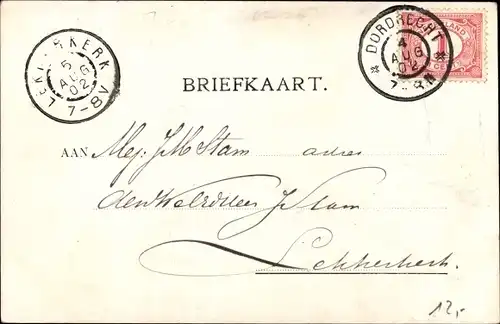 LEKKERKERK
5
AUG
02
7-8V
DORDRECHT
4
AUG
02
LAND
1
CE
BRIEFKAART.
AAN Mej: J M Stam adres
den Weledelen J Stam
Lekkerkerk.
12,-